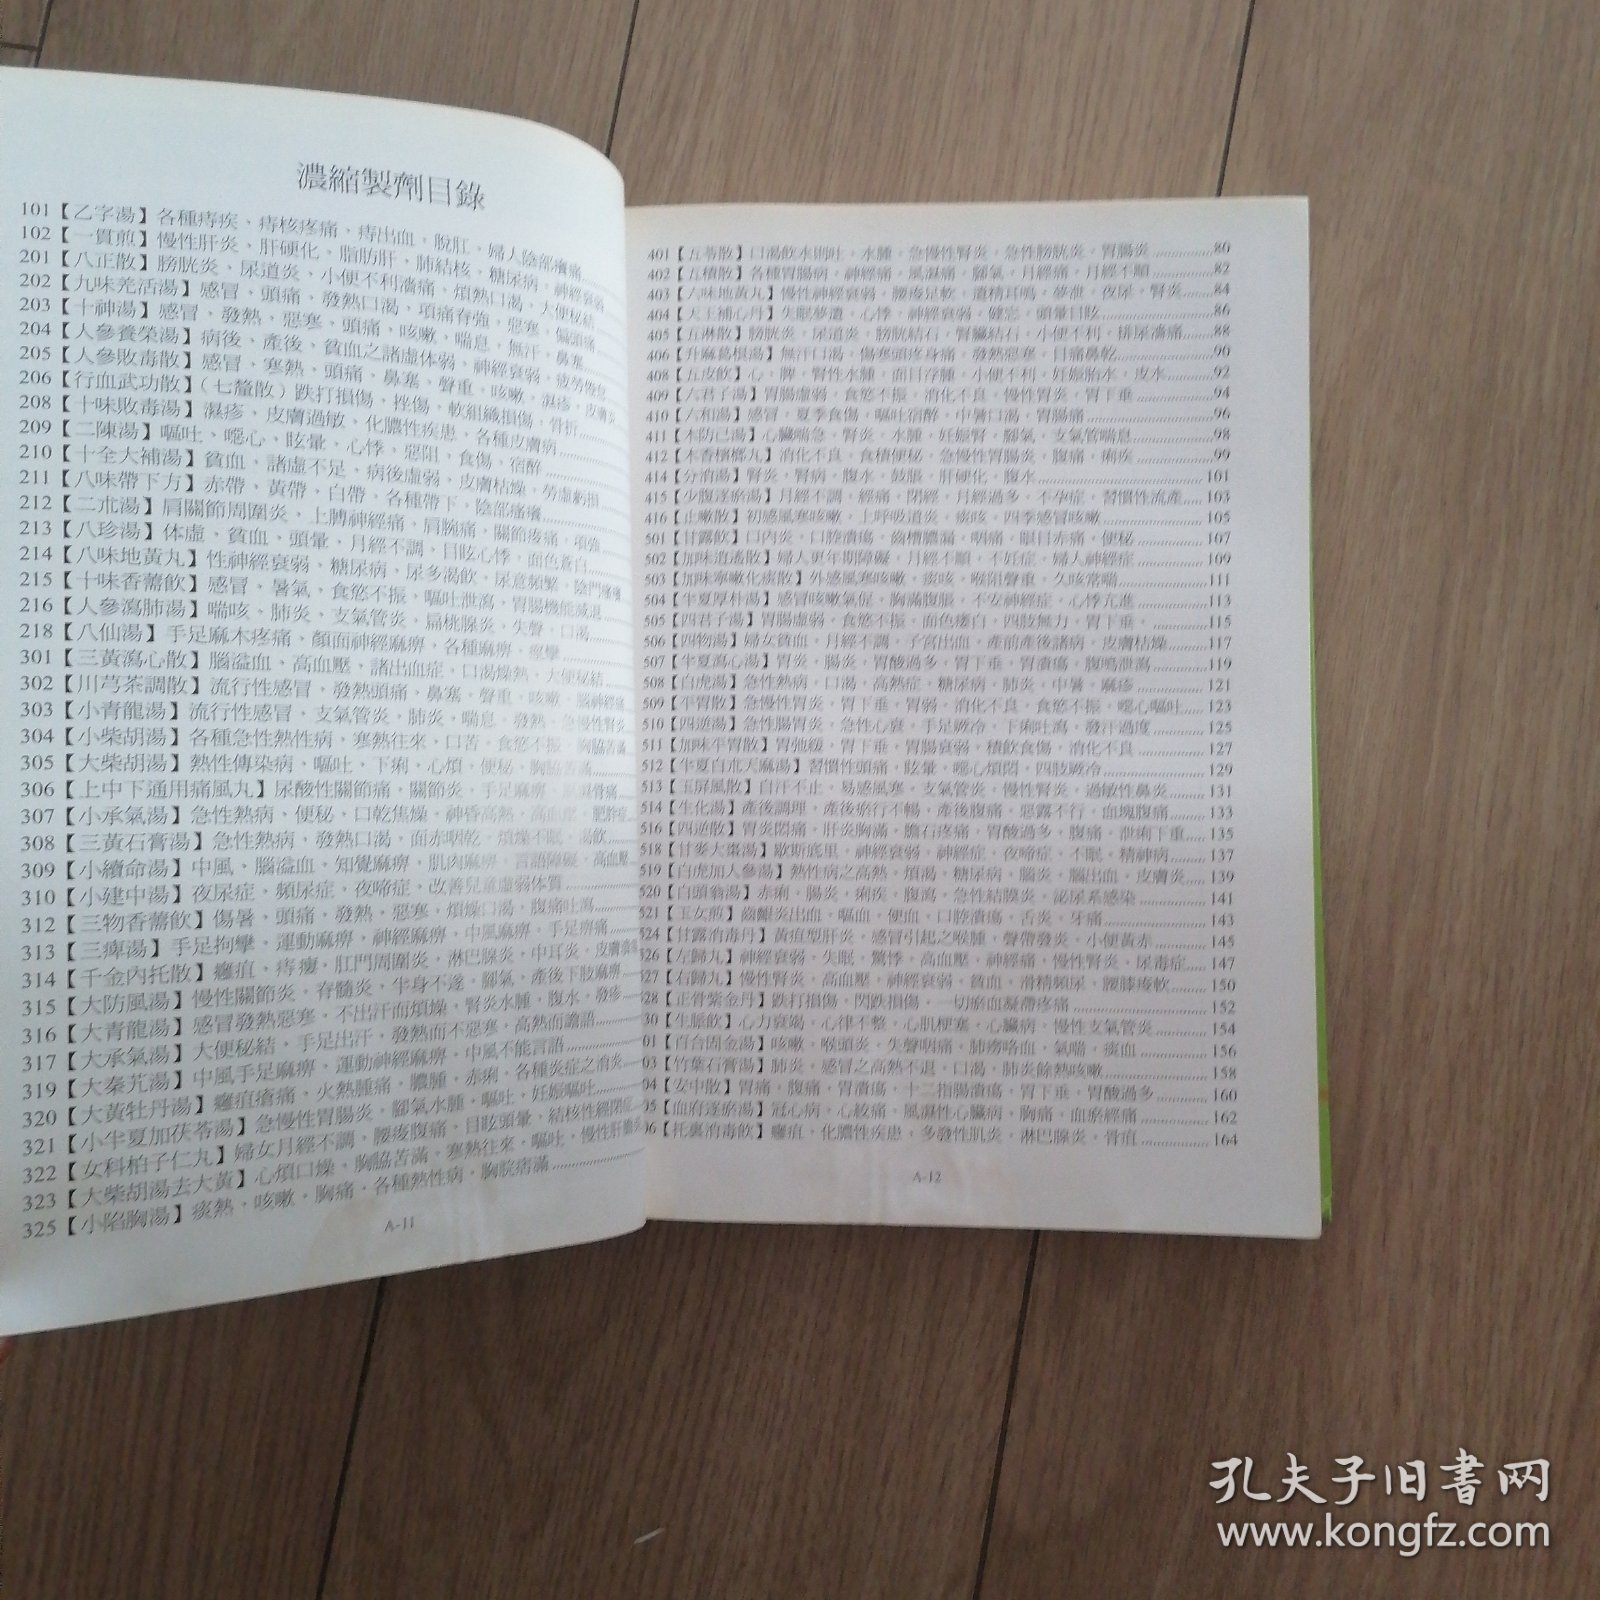 濃縮製劑目錄
101【乙字湯】各種痔疾、痔核疼痛，痔出血，脫肛，婦人陰部癢痛
102【一貫煎】慢性肝炎、肝硬化、脂肪肝，肺結核，糖尿病，神經衰弱
201【八正散】膀胱炎、尿道炎，小便不利濇痛，煩熱口渴，大便秘結
202【九味羌活湯】感冒、頭痛，發熱口渴，項痛脊強，惡寒，偏頭痛
203【十神湯】感冒、發熱，惡寒，頭痛，咳嗽，喘息，無汗，鼻塞
204【人參養榮湯】病後、產後，貧血之諸虛体弱，神經衰弱，疲勞倦怠
205【人參敗毒散】感冒、寒熱，頭痛，鼻塞，聲重，咳嗽，濕疹，皮膚炎
206【行血武功散】(七釐散)跌打損傷，挫傷，軟組織損傷，骨折
208【十味敗毒湯】濕疹，皮膚過敏，化膿性疾患，各種皮膚病
209【二陳湯】嘔吐、噁心，眩暈，心悸，惡阻，食傷，宿醉
210【十全大補湯】貧血，諸虛不足，病後虛弱，皮膚枯燥，勞虛虧損
211【八味帶下方】赤帶、黃帶，白帶，各種帶下，陰部瘙癢
212【二朮湯】肩關節周圍炎，上膊神經痛，肩腕痛，關節疼痛，項強
213【八珍湯】体虛，貧血，頭暈，月經不調，目眩心悸，面色蒼白
214【八味地黃丸】性神經衰弱，糖尿病，尿多渴飲，尿意頻繁，陰門瘙癢
215【十味香薷飲】感冒，暑氣，食慾不振，嘔吐泄瀉，胃腸機能減退
216【人參瀉肺湯】喘咳，肺炎，支氣管炎，扁桃腺炎，失聲，口渴
218【八仙湯】手足麻木疼痛，顏面神經麻痹，各種麻痹，痙攣
301【三黃瀉心散】腦溢血，高血壓，諸出血症，口渴燥熱，大便秘結
302【川芎茶調散】流行性感冒，發熱頭痛，鼻塞，聲重，咳嗽，腦神經痛
303【小青龍湯】流行性感冒，支氣管炎，肺炎，喘息，發熱，急慢性腎炎
304【小柴胡湯】各種急性熱性病，寒熱往來，口苦，食慾不振，胸脇苦滿
305【大柴胡湯】熱性傳染病，嘔吐，下痢，心煩，便秘，胸脇苦滿
306【上中下通用痛風丸】尿酸性關節痛，關節炎，手足麻痹，骨痛
307【小承氣湯】急性熱病，便秘，口乾焦燥，神昏高熱，高血壓，肥胖症
308【三黃石膏湯】急性熱病，發熱口渴，面赤咽乾，煩燥不眠，渴飲
309【小續命湯】中風，腦溢血，知覺麻痹，肌肉麻痹，言語障礙，高血壓
310【小建中湯】夜尿症，頻尿症，夜啼症，改善兒童虛弱体質
312【三物香薷飲】傷暑，頭痛，發熱，惡寒，煩燥口渴，腹痛吐瀉
313【三痺湯】手足拘攣，運動麻痹，神經麻痹，中風麻痹，手足痹痛
314【千金內托散】癰疽，痔瘻，肛門周圍炎，淋巴腺炎，中耳炎，皮膚潰瘍
315【大防風湯】慢性關節炎，脊髓炎，半身不遂，腳氣，產後下肢麻痹
316【大青龍湯】感冒發熱惡寒，不出汗而煩燥，腎炎水腫，腹水，發疹
317【大承氣湯】大便秘結，手足出汗，發熱而不惡寒，高熱而譫語
319【大秦艽湯】中風手足麻痹，運動神經麻痹，中風不能言語
320【大黃牡丹湯】癰疽瘡痛，火熱腫痛，膿腫，赤痢，各種炎症之消炎
321【小半夏加茯苓湯】急慢性胃腸炎，腳氣水腫，嘔吐，妊娠嘔吐
322【女科柏子仁丸】婦女月經不調，腰痠腹痛，目眩頭暈，結核性經閉症
323【大柴胡湯去大黃】心煩口燥，胸脇苦滿，寒熱往來，嘔吐，慢性肝膽炎
325【小陷胸湯】痰熱，咳嗽，胸痛，各種熱性病，胸脘痞滿
A-11
401【五苓散】口渴飲水則吐，水腫，急慢性腎炎，急性膀胱炎，胃腸炎 80
402【五積散】各種胃腸病，神經痛，風濕痛，腳氣，月經痛，月經不順 82
403【六味地黃丸】慢性神經衰弱，腰痠足軟，遺精耳鳴，夢泄，夜尿，腎炎 84
404【天王補心丹】失眠夢遺，心悸，神經衰弱，健忘，頭暈目眩 86
405【五淋散】膀胱炎，尿道炎，膀胱結石，腎臟結石，小便不利，排尿濇痛 88
406【升麻葛根湯】無汗口渴，傷寒頭疼身痛，發熱惡寒，目痛鼻乾 90
408【五皮飲】心，脾，腎性水腫，面目浮腫，小便不利，妊娠胎水，皮水 92
409【六君子湯】胃腸虛弱，食慾不振，消化不良，慢性胃炎，胃下垂 94
410【六和湯】感冒，夏季食傷，嘔吐宿醉，中暑口渴，胃腸痛 96
411【木防己湯】心臟喘急，腎炎，水腫，妊娠腎，腳氣，支氣管喘息 98
412【木香檳榔丸】消化不良，食積便秘，急慢性胃腸炎，腹痛，痢疾 99
414【分消湯】腎炎，腎病，腹水，鼓脹，肝硬化，腹水 101
415【少腹逐瘀湯】月經不調，經痛，閉經，月經過多，不孕症，習慣性流產 103
416【止嗽散】初感風寒咳嗽，上呼吸道炎，痰咳，四季感冒咳嗽 105
501【甘露飲】口內炎，口腔潰瘍，齒槽膿漏，咽痛，眼目赤痛，便秘 107
502【加味逍遙散】婦人更年期障礙，月經不順，不妊症，婦人神經症 109
503【加味寧嗽化痰散】外感風寒咳嗽，痰咳，喉阻聲重，久咳常喘 111
504【半夏厚朴湯】感冒咳嗽氣促，胸滿腹脹，不安神經症，心悸亢進 113
505【四君子湯】胃腸虛弱，食慾不振，面色痿白，四肢無力，胃下垂 115
506【四物湯】婦女貧血，月經不調，子宮出血，產前產後諸病，皮膚枯燥 117
507【半夏瀉心湯】胃炎，腸炎，胃酸過多，胃下垂，胃潰瘍，腹鳴泄瀉 119
508【白虎湯】急性熱病，口渴，高熱症，糖尿病，肺炎，中暑，麻疹 121
509【平胃散】急慢性胃炎，胃下垂，胃弱，消化不良，食慾不振，噁心嘔吐 123
510【四逆湯】急性腸胃炎，急性心衰，手足厥冷，下痢吐瀉，發汗過度 125
511【加味平胃散】胃弛緩，胃下垂，胃腸衰弱，積飲食傷，消化不良 127
512【半夏白朮天麻湯】習慣性頭痛，眩暈，噁心煩悶，四肢厥冷 129
513【玉屏風散】自汗不止，易感風寒，支氣管炎，慢性腎炎，過敏性鼻炎 131
514【生化湯】產後調理，產後瘀行不暢，產後腹痛，惡露不行，血塊腹痛 133
516【四逆散】胃炎悶痛，肝炎胸滿，膽石疼痛，胃酸過多，腹痛，泄痢下重 135
518【甘麥大棗湯】歇斯底里，神經衰弱，神經症，夜啼症，不眠，精神病 137
519【白虎加人參湯】熱性病之高熱，煩渴，糖尿病，腦炎，腦出血，皮膚炎 139
520【白頭翁湯】赤痢，腸炎，痢疾，腹瀉，急性結膜炎，泌尿系感染 141
521【玉女煎】齒齦炎出血，嘔血，便血，口腔潰瘍，舌炎，牙痛 143
524【甘露消毒丹】黃疸型肝炎，感冒引起之喉腫，聲帶發炎，小便黃赤 145
526【左歸丸】神經衰弱，失眠，驚悸，高血壓，神經痛，慢性腎炎，尿毒症 147
527【右歸丸】慢性腎炎，高血壓，神經衰弱，貧血，滑精頻尿，腰膝痠軟 150
528【正骨紫金丹】跌打損傷，閃跌損傷，一切瘀血凝帶疼痛 152
30【生脈飲】心力衰竭，心律不整，心肌梗塞，心臟病，慢性支氣管炎 154
01【百合固金湯】咳嗽，喉頭炎，失聲咽痛，肺癆咯血，氣喘，痰血 156
03【竹葉石膏湯】肺炎，感冒之高熱不退，口渴，肺炎餘熱咳嗽 158
04【安中散】胃痛，腹痛，胃潰瘍，十二指腸潰瘍，胃下垂，胃酸過多 160
05【血府逐瘀湯】冠心病，心絞痛，風濕性心臟病，胸痛，血瘀經痛 162
06【托裏消毒飲】癰疽，化膿性疾患，多發性肌炎，淋巴腺炎，骨疽 164
A-12
孔夫子旧书网
www.kongfz.com